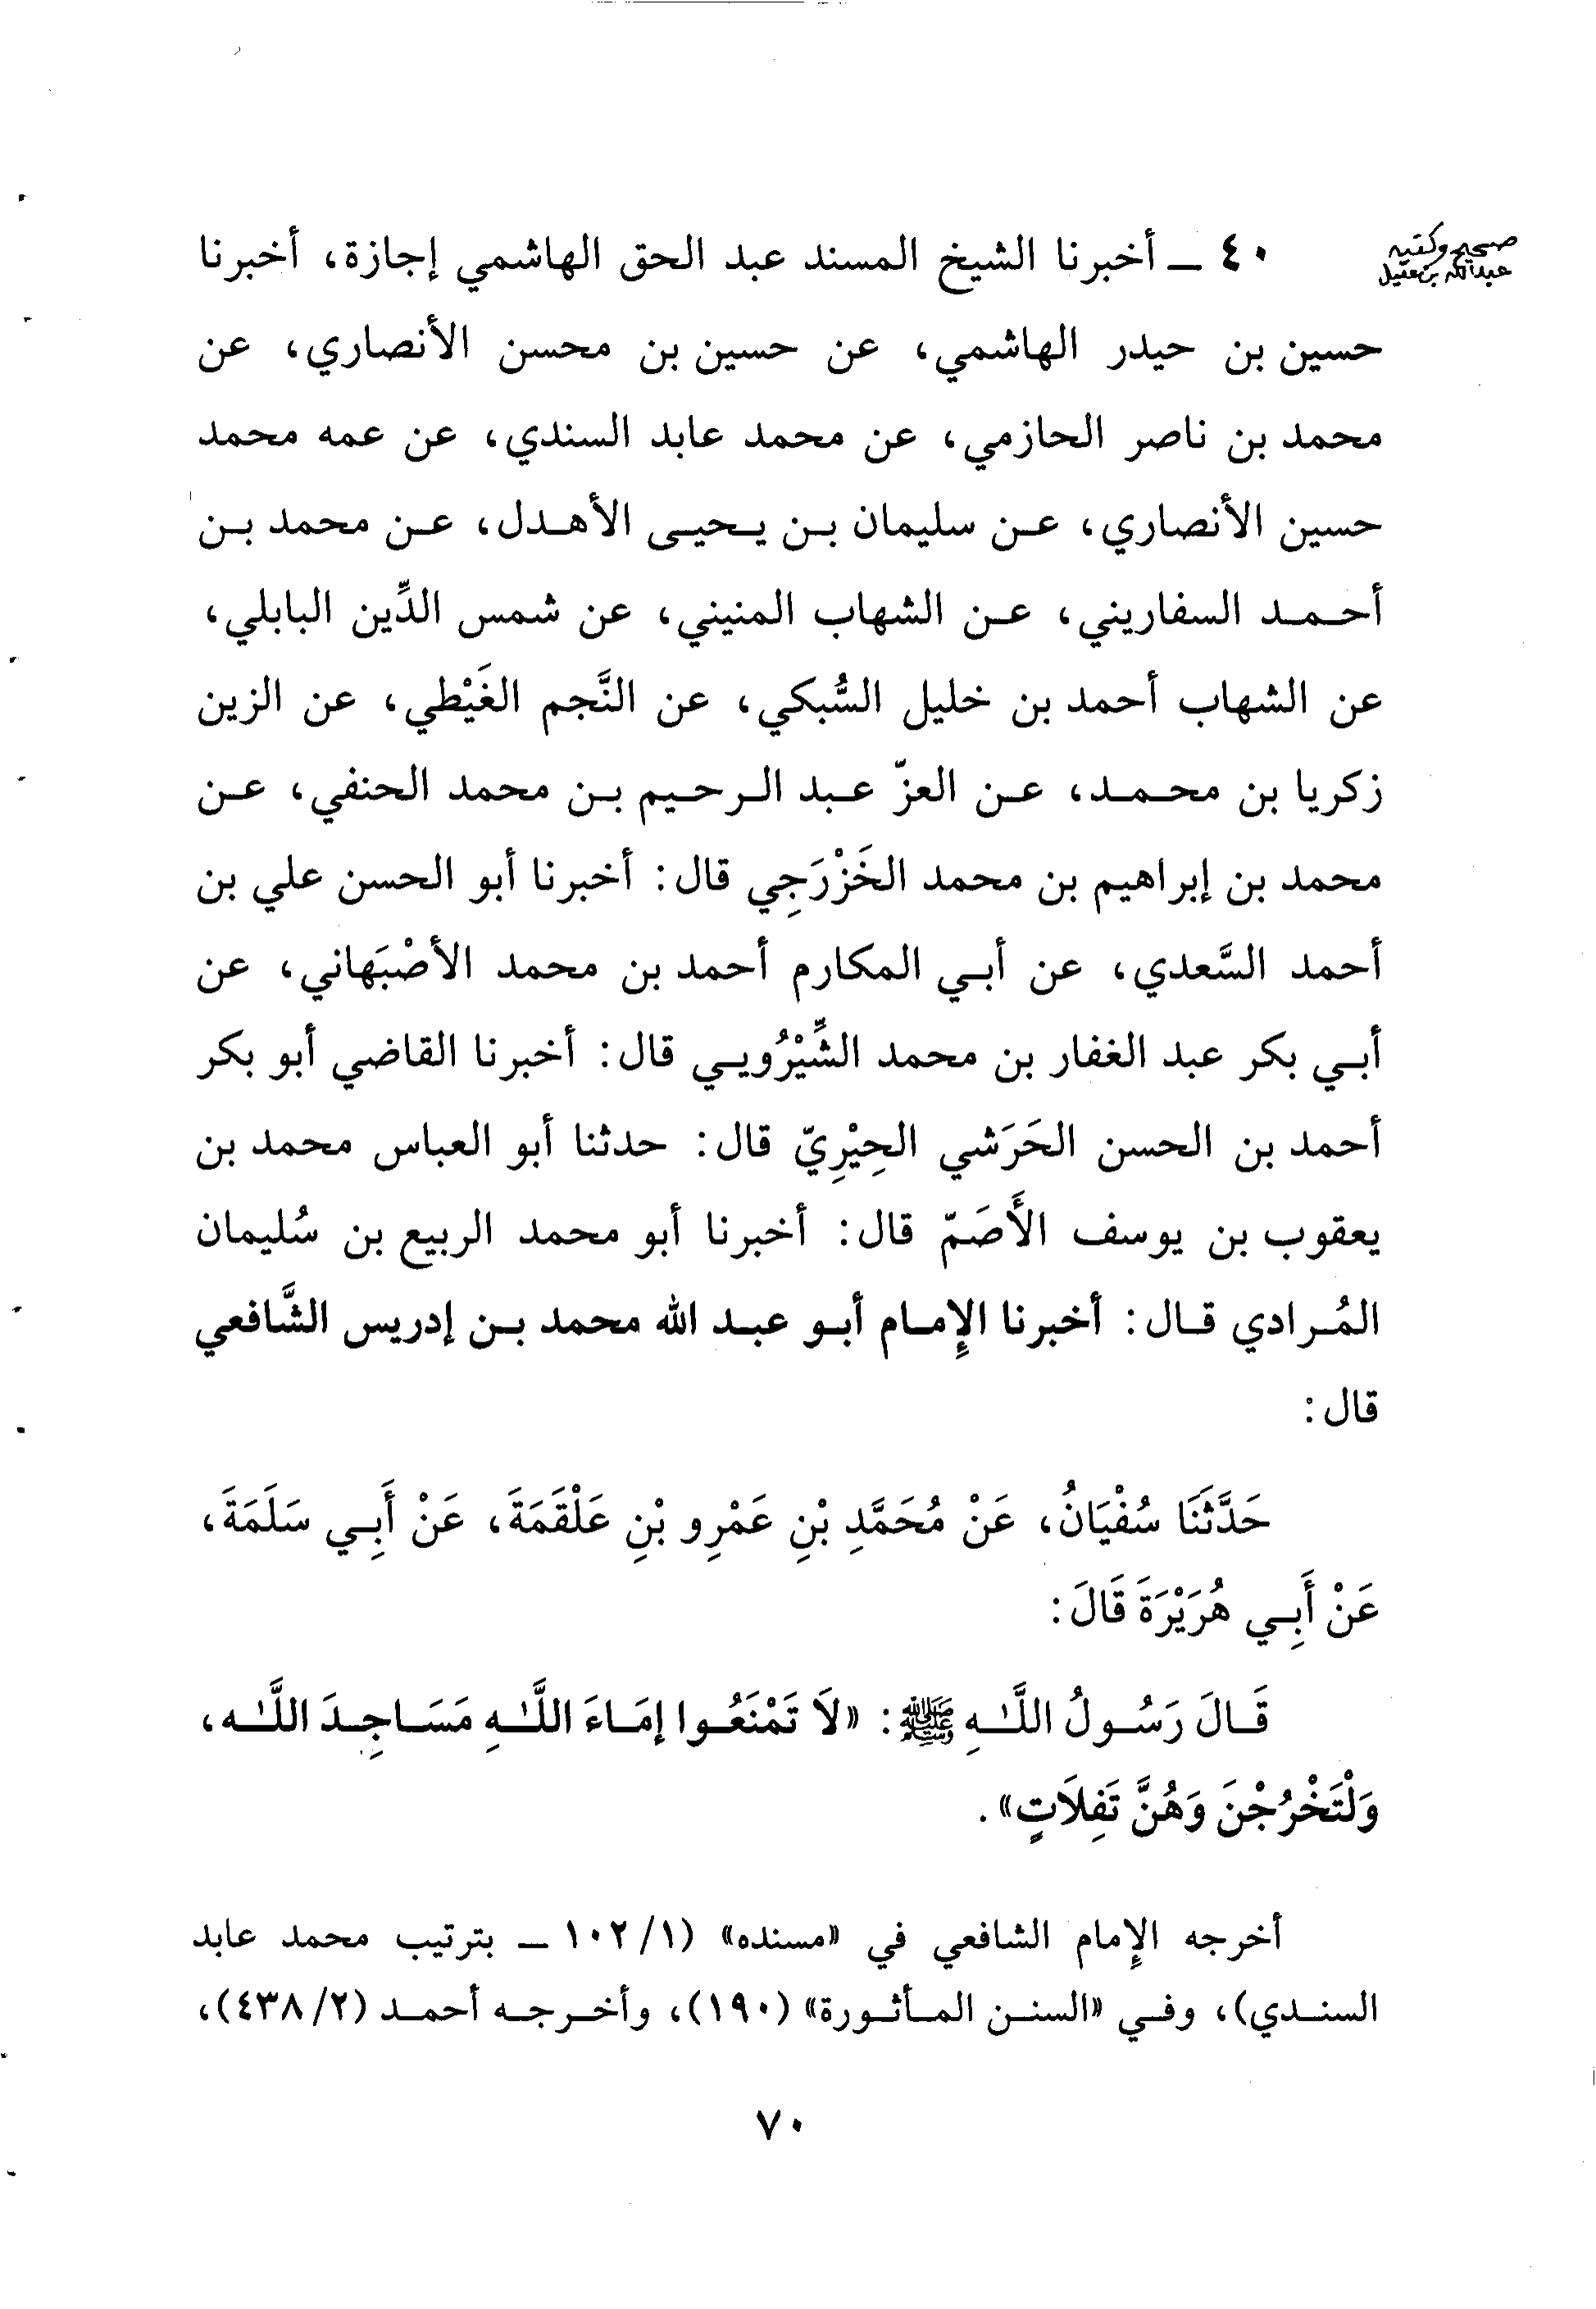 صحيح وكتبه
عبدالله بن عقيل
٤٠ ــ أخبرنا الشيخ المسند عبد الحق الهاشمي إجازة، أخبرنا
حسين بن حيدر الهاشمي، عن حسين بن محسن الأنصاري، عن
محمد بن ناصر الحازمي، عن محمد عابد السندي، عن عمه محمد
حسين الأنصاري، عن سليمان بن يحيى الأهدل، عن محمد بن
أحمد السفاريني، عن الشهاب المنيني، عن شمس الدِّين البابلي،
عن الشهاب أحمد بن خليل السُّبكي، عن النَّجم الغَيْطي، عن الزين
زكريا بن محمد، عن العزّ عبد الرحيم بن محمد الحنفي، عن
محمد بن إبراهيم بن محمد الخَزْرَجِي قال: أخبرنا أبو الحسن علي بن
أحمد السَّعدي، عن أبي المكارم أحمد بن محمد الأصْبَهاني، عن
أبي بكر عبد الغفار بن محمد الشِّيْرُويي قال: أخبرنا القاضي أبو بكر
أحمد بن الحسن الحَرَشي الحِيْرِيّ قال: حدثنا أبو العباس محمد بن
يعقوب بن يوسف الأَصَمّ قال: أخبرنا أبو محمد الربيع بن سُليمان
المُرادي قال: أخبرنا الإِمام أبو عبد الله محمد بن إدريس الشَّافعي
قال:
حَدَّثَنَا سُفْيَانُ، عَنْ مُحَمَّدِ بْنِ عَمْرِو بْنِ عَلْقَمَةَ، عَنْ أَبِي سَلَمَةَ،
عَنْ أَبِي هُرَيْرَةَ قَالَ:
قَالَ رَسُولُ اللَّهِ ﷺ: «لاَ تَمْنَعُوا إمَاءَ اللَّهِ مَسَاجِدَ اللَّه،
وَلْتَخْرُجْنَ وَهُنَّ تَفِلاَتٍ».
أخرجه الإِمام الشافعي في «مسنده» (١/ ١٠٢ ــ بترتيب محمد عابد
السندي)، وفي «السنن المأثورة» (١٩٠)، وأخرجه أحمد (٢/ ٤٣٨)،
٧٠